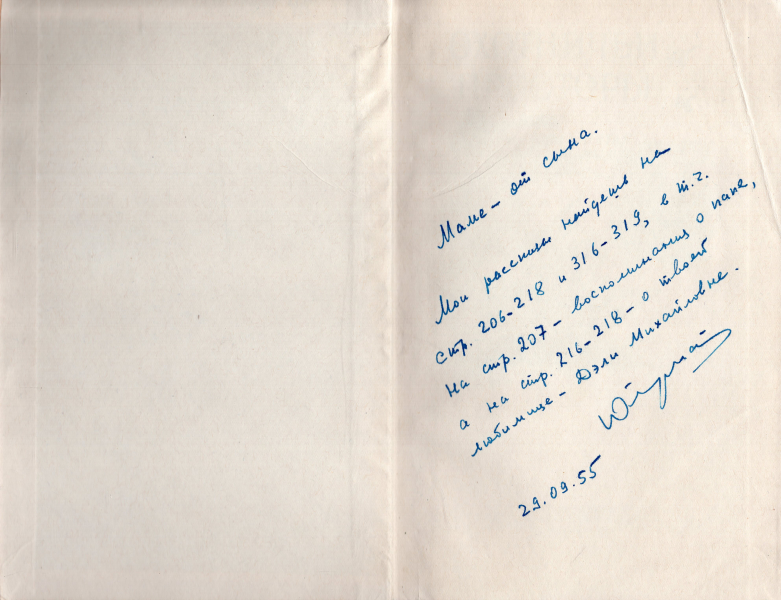 Маме – от сына.
Мои рассказы найдешь на
стр. 206-218 и 316-319, в т.ч.
на стр. 207 – воспоминания о папе,
а на стр. 216-218 – о твоей
любимице – Дэли Михайловне.
29.09.55